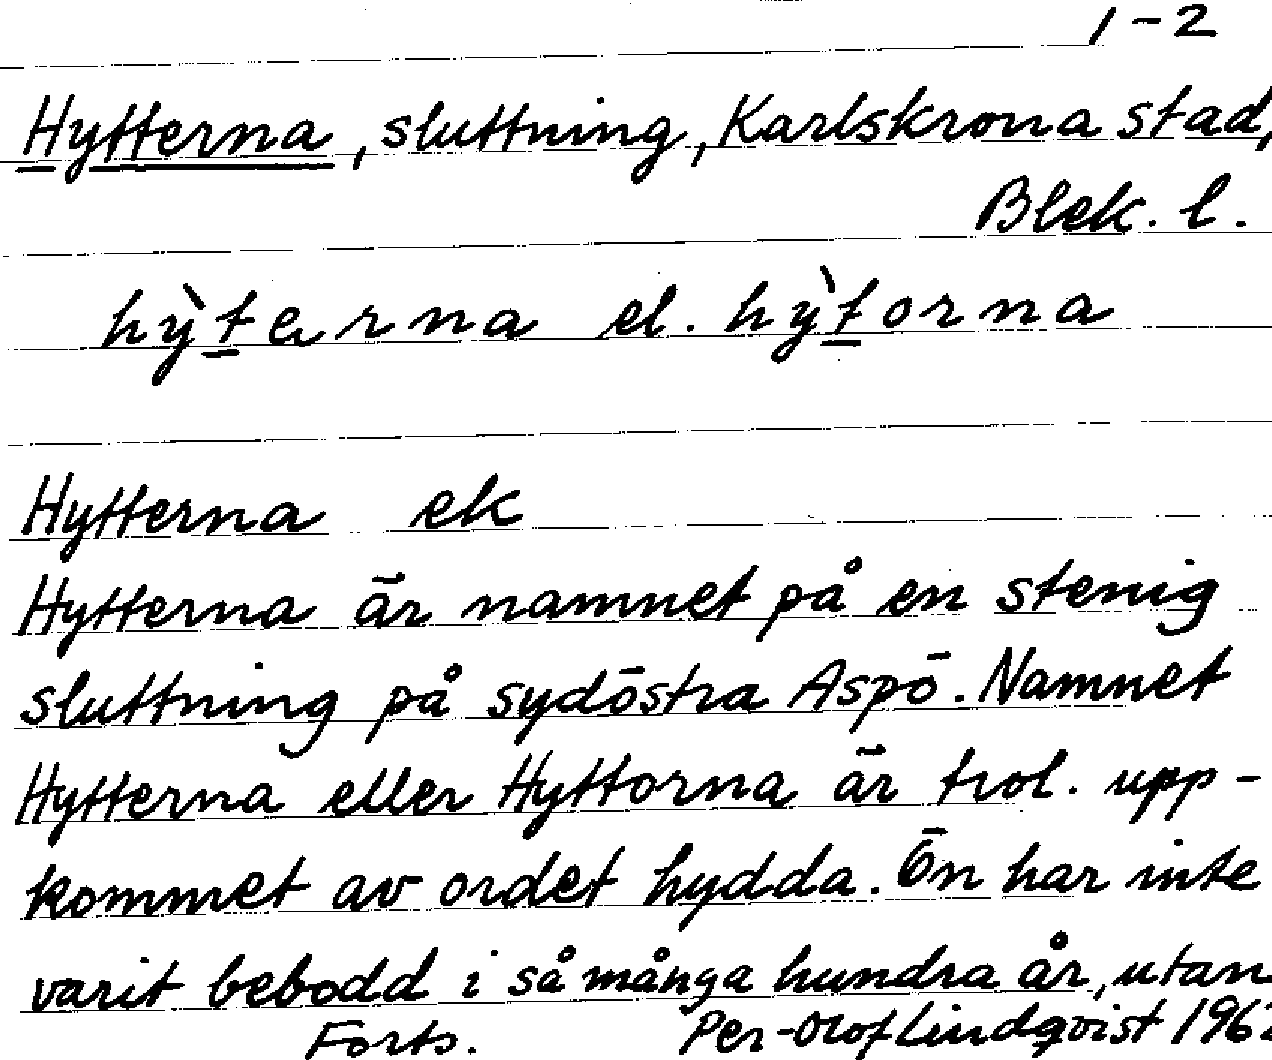 1-2
Hytterna, sluttning, Karlskrona stad,
Blek. l.
hỳt̲erna el. hỳt̲orna
Hytterna ek
Hytterna är namnet på en stenig
sluttning på sydöstra Aspö. Namnet
Hytterna eller Hyttorna är trol. upp-
kommet av ordet hydda. Ön har inte
varit bebodd i så många hundra år, utan
Forts. Per-Olof Lindqvist